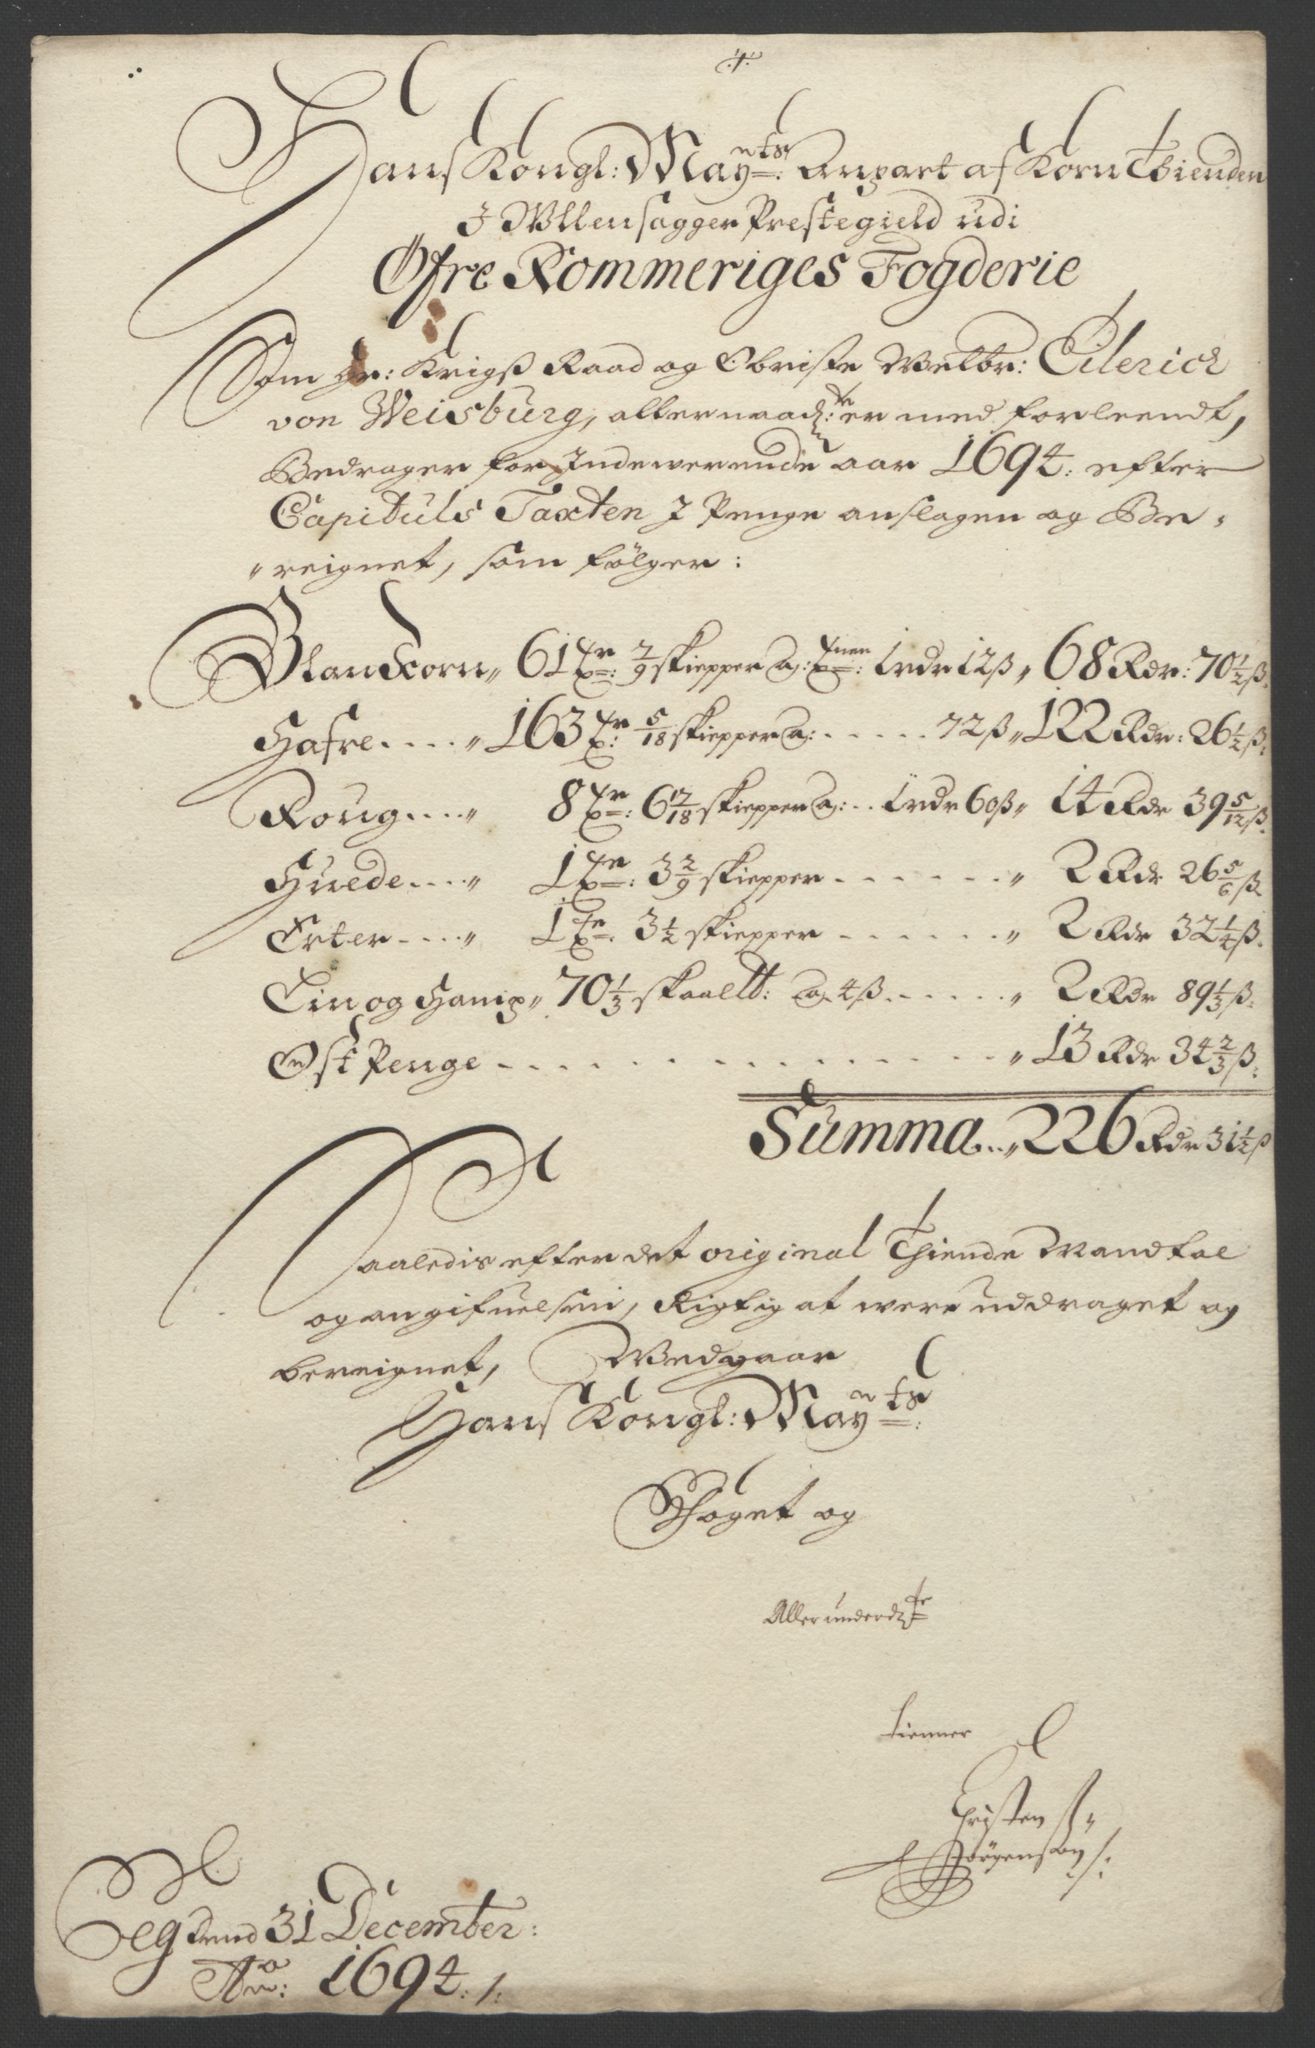 Hans Kongl: May:ts Anpart af Korn Thienden
I Ullensagger Prestegield udi
Øfre Rommeriges Fogderie
Som Hr: Krigs Raad og Obriste Welbr: Eilerich
von Weisburg, allernaad:te er med forleendt,
Bedrager for Indewerende aar 1694. efter
Capituls Taxten I Penge anslagen og Be„
„reignet, som følger:
Blandkorn„ 61 Tr: 2/9 skiepper a: Tnen: 1 rdr 12ß„ 68 Rdr: 70 1/2 ß.
Hafre....„ 163 Tr: 5/18 skiepper a: ..... 72ß„ 122 Rdr: 26 1/2 ß:
Roug....„ 8 Tr: 6 17/18 skiepper a: .. 1 rdr 60ß„ 14 Rdr 39 5/12 ß.
Huede....„ 1 Tr: 3 2/9 skiepper ......„ 2 Rdr 26 5/6 ß.
Erter....„ 1 Te: 3 1/2 skiepper ......„ 2 Rdr 32 1/4 ß.
Lin og Hamp„ 70 1/3 skaaltt: a 4ß......„ 2 Rdr 89 1/3 ß:
Ost Penge ...............„ 13 Rdr 34 2/3 ß:
Summa..„ 226 Rdr 31 1/2 ß
Saaledis efter det original Thiende Mandtal
og angifuelsen, Rigtig at were uddraget og
bereignet, Wedgaar
Hans Kongl: May:ts
Foget og
Allerunderd:te
tienner
Christen
Jørgensøn
Aeg dend 31 December:
Ao: 1694./.